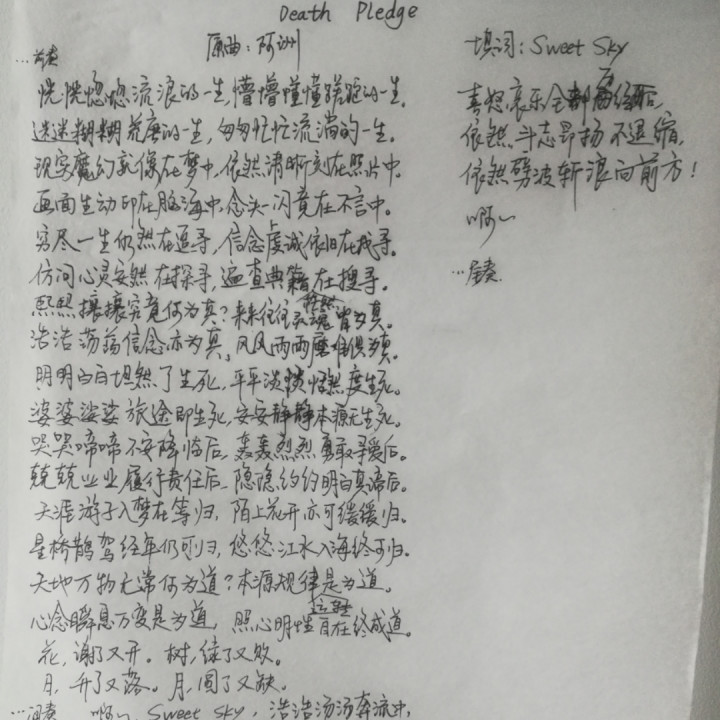 Death Pledge
原曲：阿洲
…前奏
恍恍惚惚流浪的一生，懵懵懂懂蹉跎的一生。
迷迷糊糊荒废的一生，匆匆忙忙流淌的一生。
现实魔幻就像在梦中，依然清晰刻在照片中。
画面生动印在脑海中，念头一闪竟在不言中。
穷尽一生仍然在追寻，信念虔诚依旧在找寻。
仿问心灵安然在探寻，遍查典籍在搜寻。
熙熙攘攘究竟何为真？来来往往灵魂皆为真。
浩浩荡荡信念亦为真，风风雨雨俱为真。
明明白白坦然了生死，平平淡淡悄然度生死。
婆婆娑娑旅途即生死，安安静静本源无生死。
哭哭啼啼不安降临后，轰轰烈烈勇敢寻爱后。
兢兢业业履行责任后，隐隐约约明白真谛后。
天涯游子入梦在等归，陌上花开亦可缓缓归。
星桥鹊驾经年仍可归，悠悠江水入海终可归。
天地万物无常何为道？本源规律是为道。
心念瞬息万变是为道，照心明性自在终成道。
花，谢了又开。树，绿了又败。
日，升了又落。月，圆了又缺。
…间奏 啊～ Sweet Sky，浩浩汤汤奔流中，
填词：Sweet Sky
喜怒哀乐全部历经后，
依然斗志昂扬不退缩，
依然劈波斩浪向前方！
啊～
…尾奏